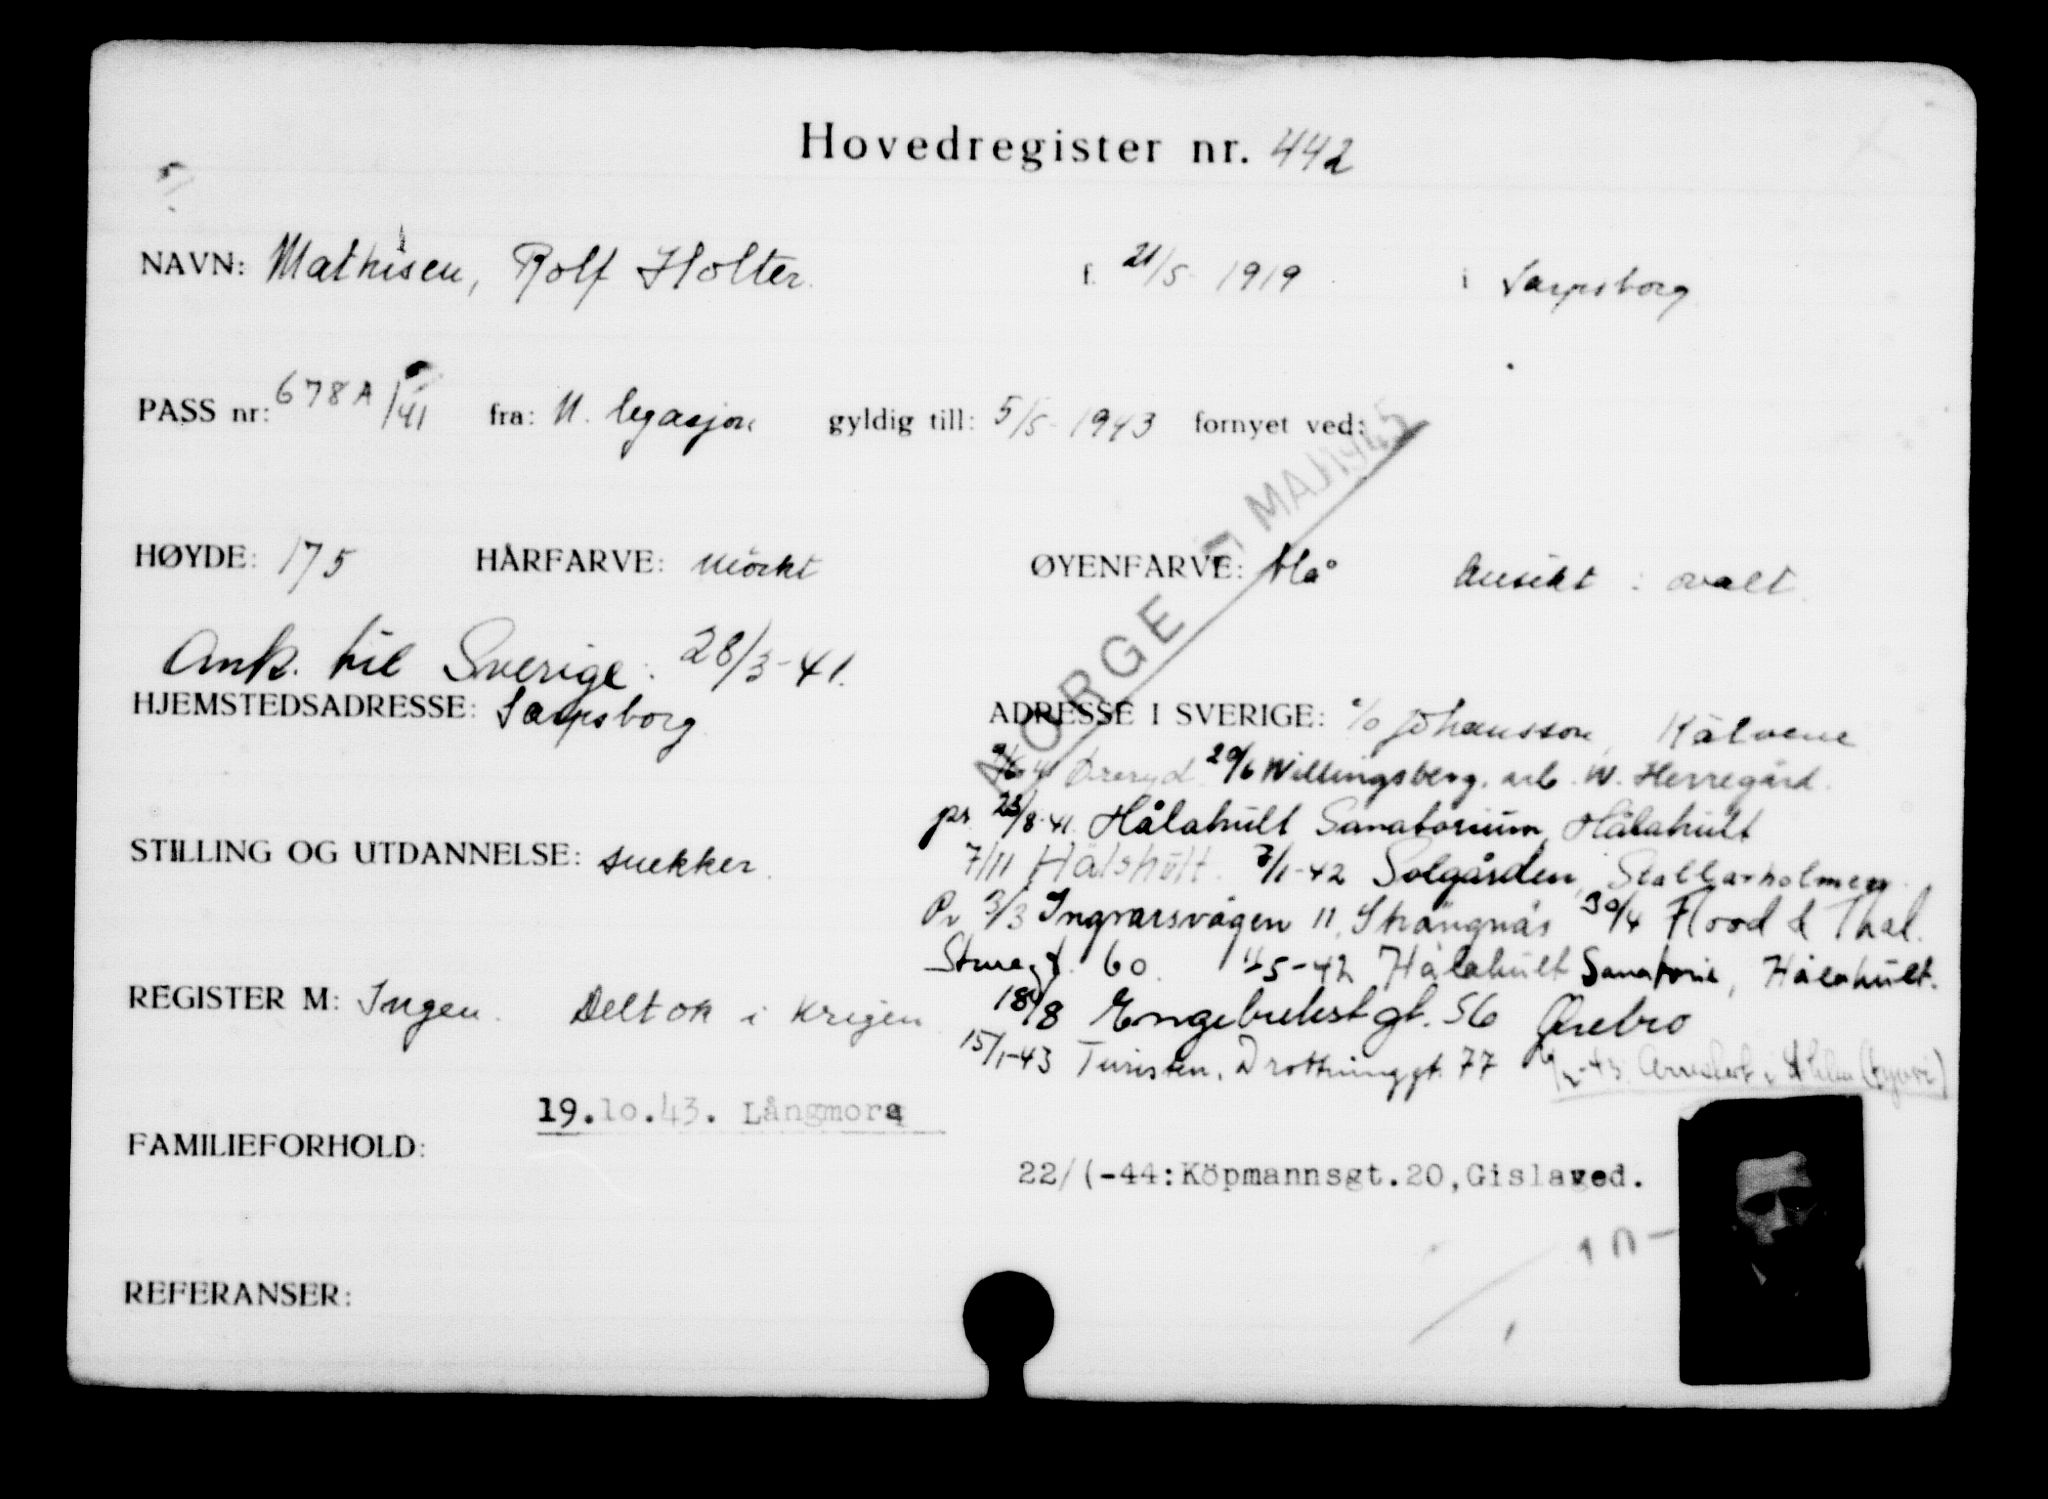 Hovedregister nr. 442
NAVN: Mathisen, Rolf Holter. f. 21/5 1919 i Sarpsborg
PASS nr: 678A/41 fra: N. legasjon gyldig till: 5/5-1943 fornyet ved:
HØYDE: 175 HÅRFARVE: mörkt ØYENFARVE: blå Ansikt: ovalt.
NORGE MAJ 1945
Ank. til Sverige: 28/3-41.
HJEMSTEDSADRESSE: Sarpsborg ADRESSE I SVERIGE: c/o Johansson, Kälvene
Öreryd 20/6 Willingsberg. arb. W. Herregård.
pr. 23/8-41. Hålahult Sanatorium, Hålahult
STILLING OG UTDANNELSE: snekker. 7/11 Hålahult. 7/1-42 Solgården, Stallarholmen.
Pr 3/3 Ingvarsvägen 11, Strängnäs 30/4 Flood & Thal.
Stureg. 60. 5-42 Hålahult Sanatorie, Hålahult.
REGISTER M: Ingen. Deltok i krigen 18/8 Engelbrektsgt. 56 Ørebro
15/1-43 Turisten, Drottninggt. 77
19.10.43. Långmora
FAMILIEFORHOLD:
22/(-44: Köpmannsgt.20, Gislaved.
REFERANSER: